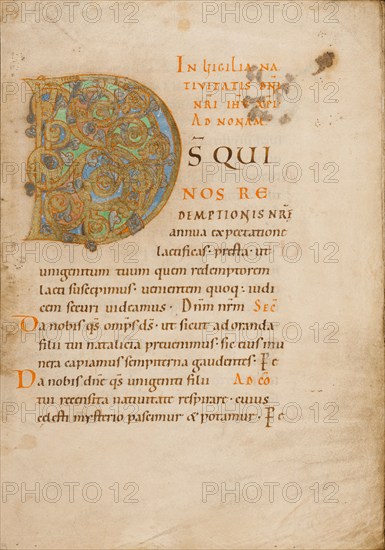 IN VIGILIA NA
TIVITATIS DNI
NRI IHU XPI
AD NONAM
D
S QUI
NOS RE
DEMPTIONIS NRE
annua expectatione
laetificas · presta · ut
unigenitum tuum quem redemptorem
laeti suscepimus · venientem quoq; iudi
cem securi videamus · Dnm nrm SEC
Da nobis qs omps ds · ut sicut adoranda
filii tui natalicia prevenimus · sic eius mu
nera capiamus sempiterna gaudentes · P c
Da nobis dne qs unigeniti filii AD CO
tui recensita nativitate respirare · cuius
celesti mysterio pascimur & potamur · P c
PHOTO 12